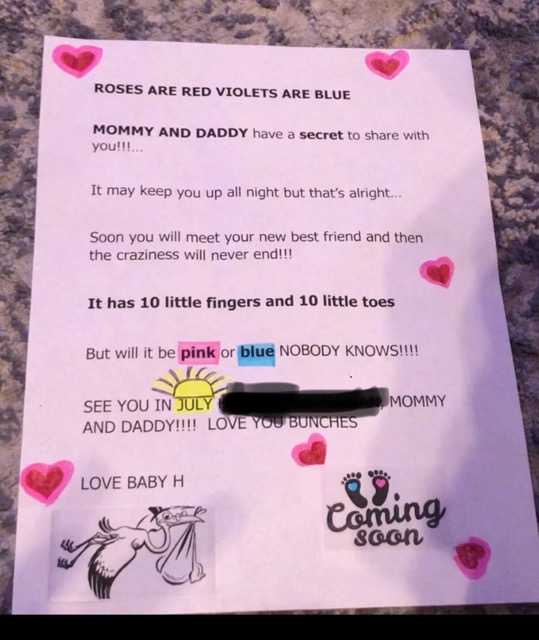 ROSES ARE RED VIOLETS ARE BLUE
MOMMY AND DADDY have a secret to share with
you!!!...
It may keep you up all night but that's alright...
Soon you will meet your new best friend and then
the craziness will never end!!!
It has 10 little fingers and 10 little toes
But will it be pink or blue NOBODY KNOWS!!!!
SEE YOU IN JULY , MOMMY
AND DADDY!!!! LOVE YOU BUNCHES
LOVE BABY H
Coming
soon